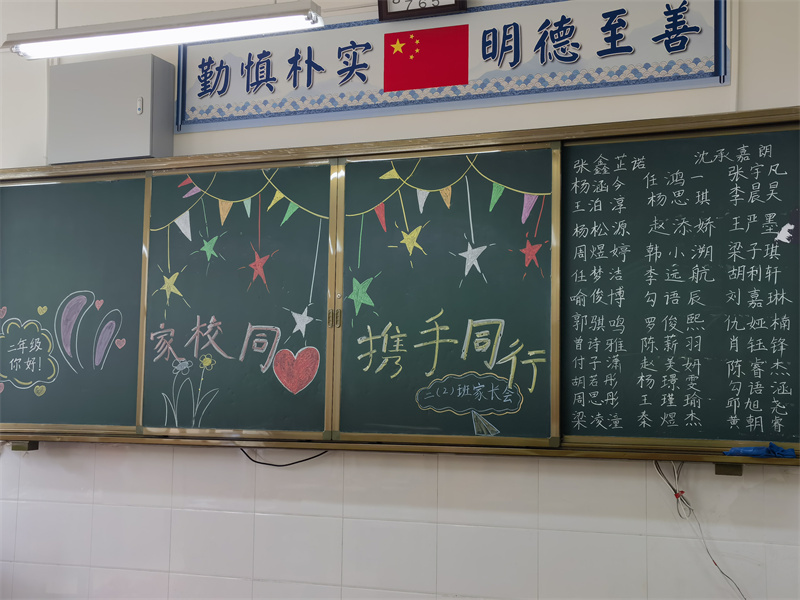 勤慎朴实 明德至善
二年级
你好!
家校同
携手同行
二(2)班家长会
张鑫芷诺 沈承嘉朗
杨涵今 任鸿一 张宇凡
王泊淳 杨思琪 李晨昊
杨松源 赵添娇 王严墨
周煜婷 韩小溯 梁子琪
任梦洁 李远航 胡利轩
喻俊博 勾语辰 刘嘉琳
郭骐鸣 罗俊熙 仇娅楠
曾诗雅 陈薪羽 肖钰锋
付子潇 赵美妍 陈睿杰
胡若彤 杨璟雯 勾语涵
周思彤 王瑾瑜 邱旭尧
梁凌潼 秦煜杰 黄朝睿